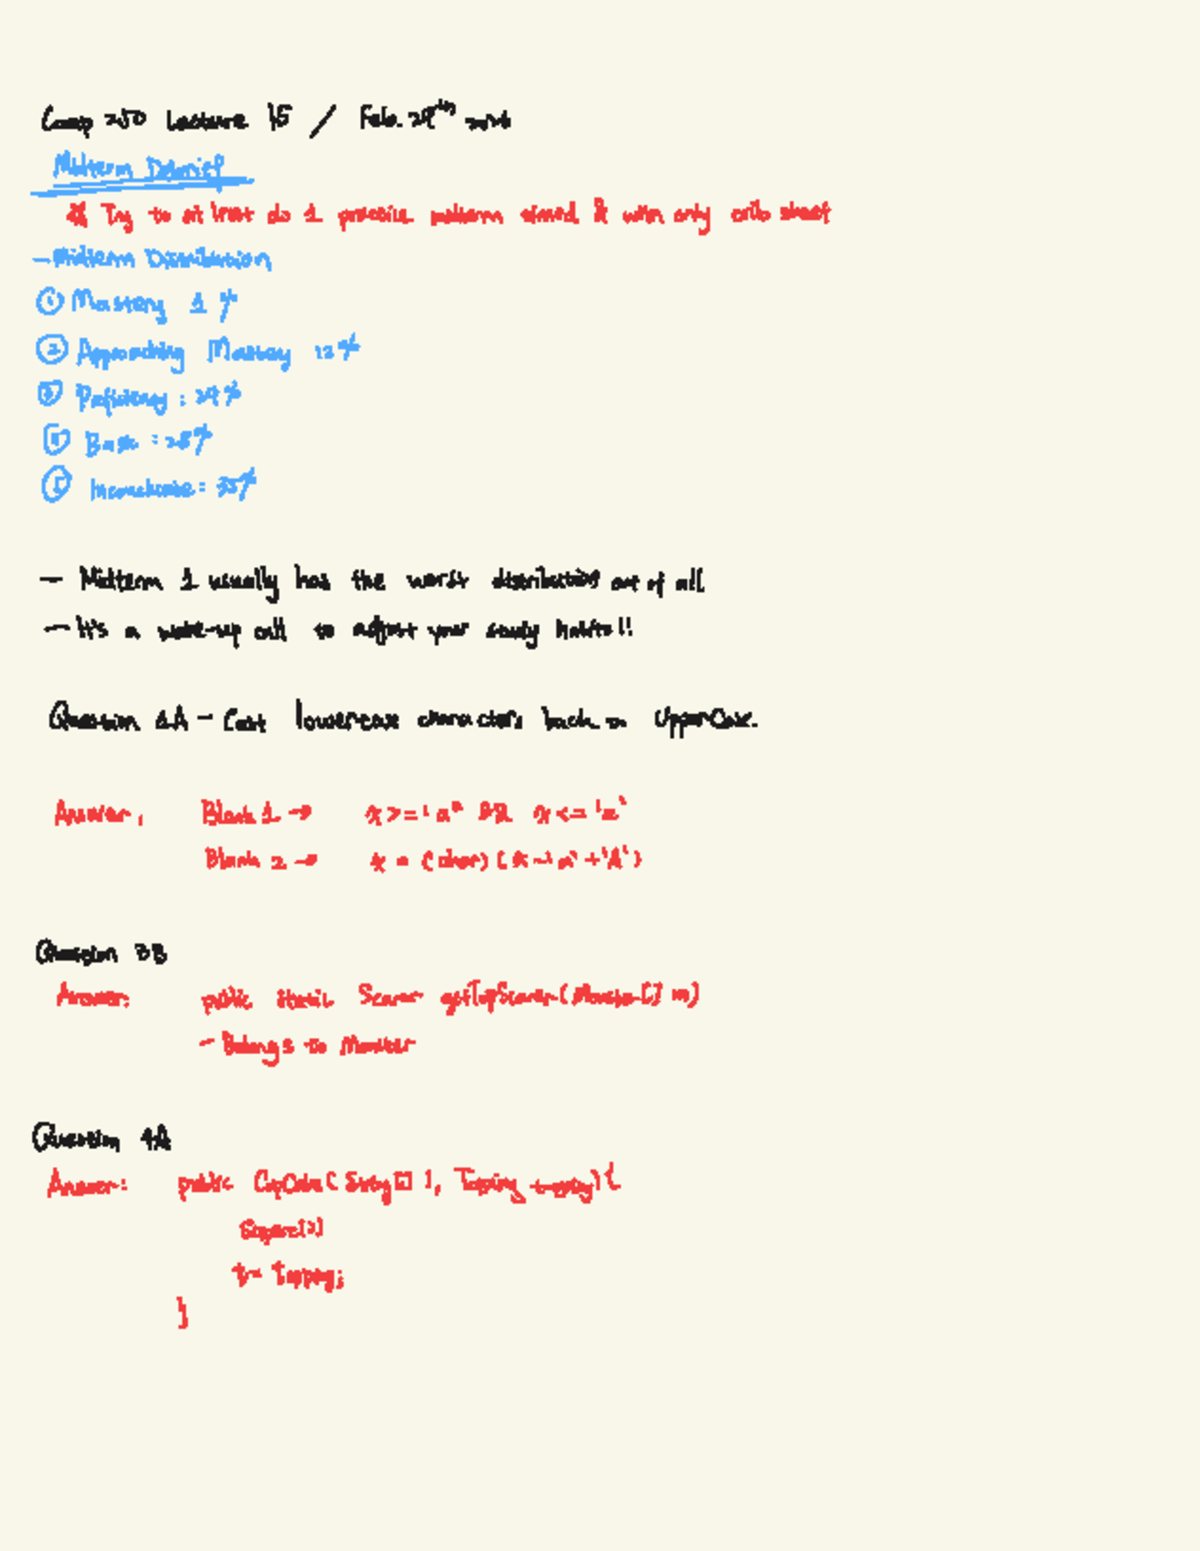 Comp 250 Lecture 15 / Feb. 29th 2024
Midterm Debrief
Try to at least do 1 practice midterm timed & with only crib sheet
- Midterm Distribution
① Mastery 1 %
② Approaching Mastery 12%
③ Proficiency : 24%
④ Basic : 28%
⑤ Inconclusive : 35%
- Midterm 1 usually has the worst distribution out of all
- It's a wake-up call to adjust your study habits!!
Question 1A - Cast lowercase characters back in UpperCase.
Answer: Blank 1 → x >= 'a' && x <= 'z'
Blank 2 → x = (char) (x - 'a' + 'A')
Question 3B
Answer: public static Scarer getTopScarer(Monster[] m)
- Belongs to Monster
Question 4A
Answer: public CupCake( String[] l, Topping topping){
super(l)
t = topping;
}